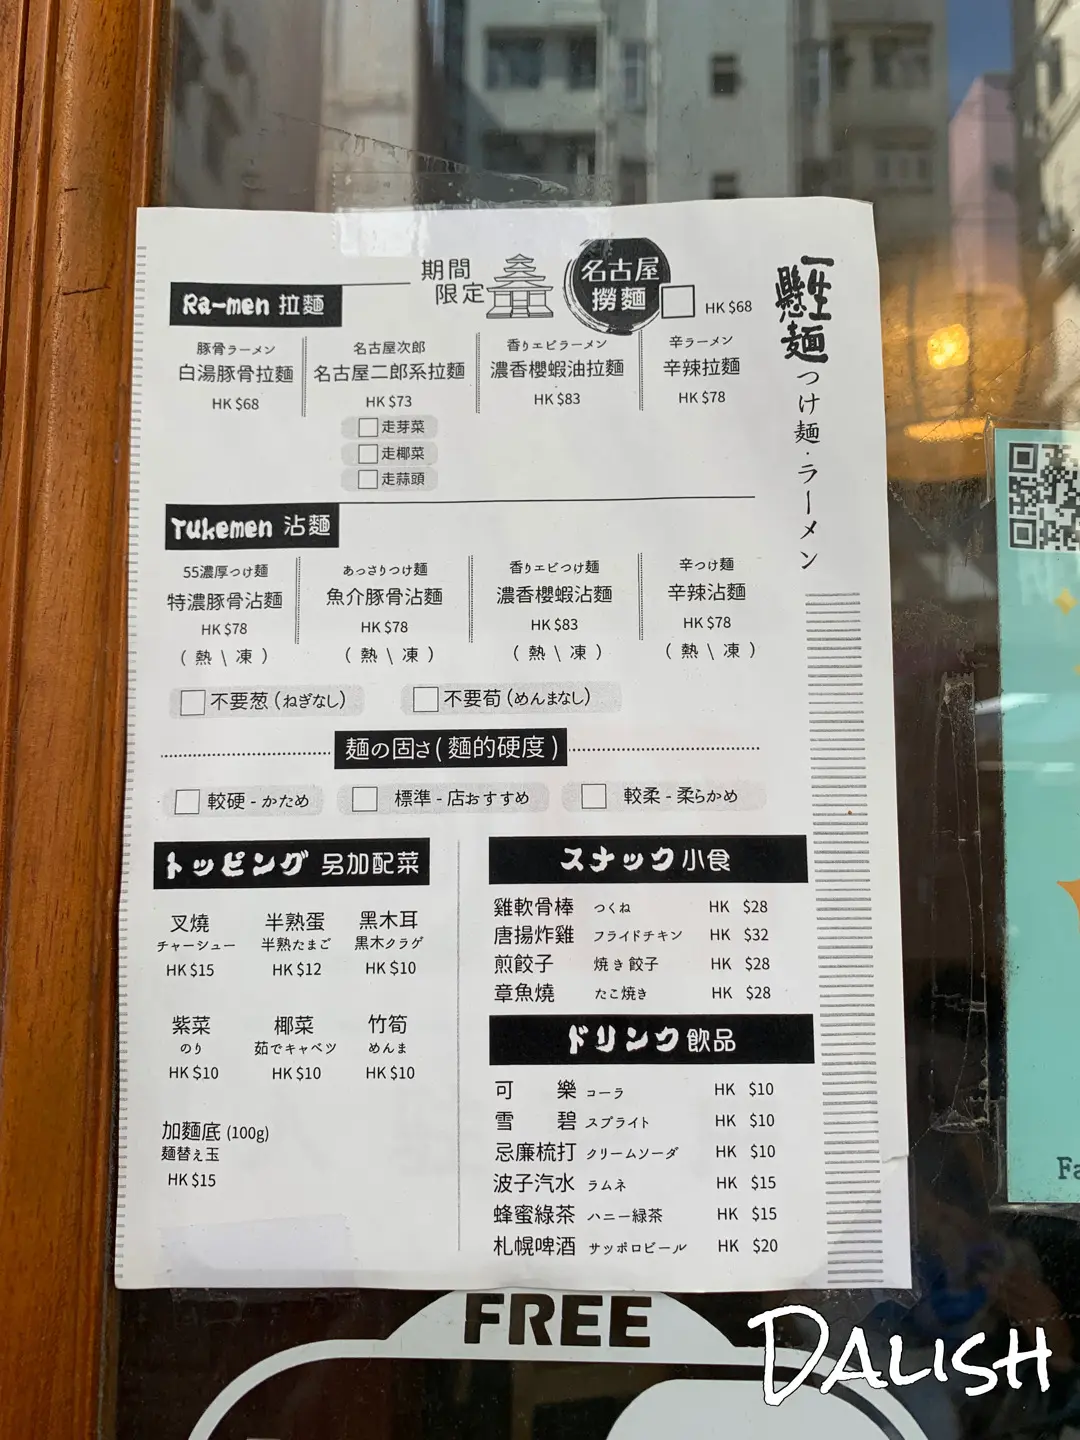 期間
限定
名古屋
撈麵
HK $68
一生
懸麺
つけ麺・ラーメン
Ra-men 拉麵
豚骨ラーメン
白湯豚骨拉麵
HK $68
名古屋次郎
名古屋二郎系拉麵
HK $73
走芽菜
走椰菜
走蒜頭
香りエビラーメン
濃香櫻蝦油拉麵
HK $83
辛ラーメン
辛辣拉麵
HK $78
Tukemen 沾麵
55濃厚つけ麺
特濃豚骨沾麵
HK $78
( 熱 \ 凍 )
あっさりつけ麺
魚介豚骨沾麵
HK $78
( 熱 \ 凍 )
香りエビつけ麺
濃香櫻蝦沾麵
HK $83
( 熱 \ 凍 )
辛つけ麺
辛辣沾麵
HK $78
( 熱 \ 凍 )
不要葱（ねぎなし）
不要荀（めんまなし）
麺の固さ( 麵的硬度 )
較硬 - かため
標準 - 店おすすめ
較柔 - 柔らかめ
トッピング 另加配菜
叉燒
チャーシュー
HK $15
半熟蛋
半熟たまご
HK $12
黑木耳
黒木クラゲ
HK $10
紫菜
のり
HK $10
椰菜
茹でキャベツ
HK $10
竹筍
めんま
HK $10
加麵底 (100g)
麺替え玉
HK $15
スナック 小食
雞軟骨棒 つくね HK $28
唐揚炸雞 フライドチキン HK $32
煎餃子 焼き餃子 HK $28
章魚燒 たこ焼き HK $28
ドリンク 飲品
可樂 コーラ HK $10
雪碧 スプライト HK $10
忌廉梳打 クリームソーダ HK $10
波子汽水 ラムネ HK $15
蜂蜜綠茶 ハニー緑茶 HK $15
札幌啤酒 サッポロビール HK $20
FREE
Fa
DALISH